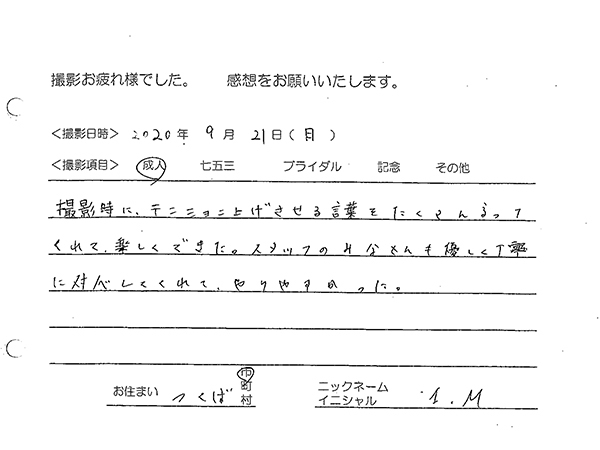 撮影お疲れ様でした。 感想をお願いいたします。
＜撮影日時＞ 2020年 9月 21日(月)
＜撮影項目＞ 成人 七五三 ブライダル 記念 その他
撮影時に、テンション上げさせる言葉をたくさん言って
くれて、楽しくできた。スタッフのみなさんも優しく丁寧
に対応してくれて、やりやすかった。
お住まい つくば 市 町 村
ニックネーム イニシャル I.M